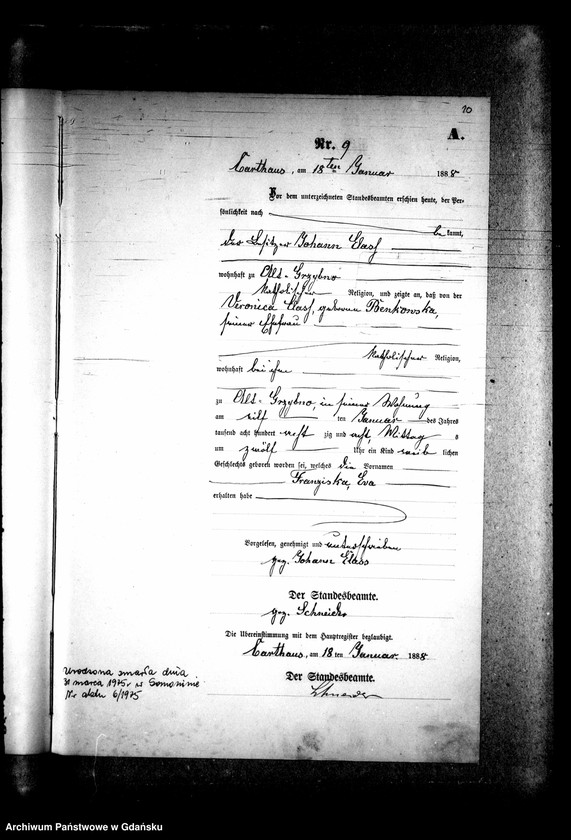 10
A.
Nr. 9
Carthaus, am 18ten Januar 1888
Vor dem unterzeichneten Standesbeamten erschien heute, der Per-
sönlichkeit nach
be kannt,
der Besitzer Johann Elass
wohnhaft zu Alt-Grzybno
katholischer Religion, und zeigte an, daß von der
Veronica Elass, geborene Benkowska,
seiner Ehefrau
katholischer Religion,
wohnhaft bei ihm
zu Alt-Grzybno, in seiner Wohnung
am elf ten Januar des Jahres
tausend acht hundert acht zig und acht, Mittag s
um zwölf Uhr ein Kind weib lichen
Geschlechts geboren worden sei, welches die Vornamen
Franziska, Eva
erhalten habe
Vorgelesen, genehmigt und unterschrieben
gez. Johann Elass
Der Standesbeamte.
gez. Schneider
Die Übereinstimmung mit dem Hauptregister beglaubigt.
Carthaus, am 18 ten Januar 1888
Der Standesbeamte.
Schneider
Urodzona zmarła dnia
31 marca 1975 r w Somoninie
Nr aktu 6/1975
Archiwum Państwowe w Gdańsku